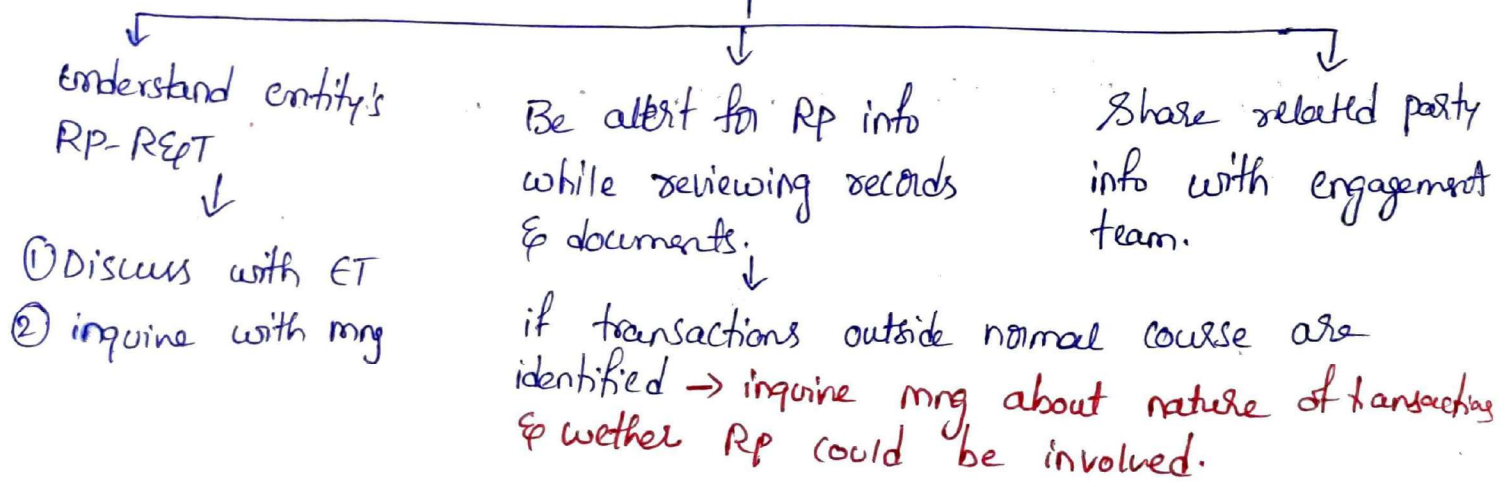 understand entity's
RP-R&T
① Discuss with ET
② inquire with mng
Be alert for RP info
while reviewing records
& documents.
if transactions outside normal course are
identified → inquire mng about nature of transactions
& wether RP could be involved.
Share related party
info with engagement
team.